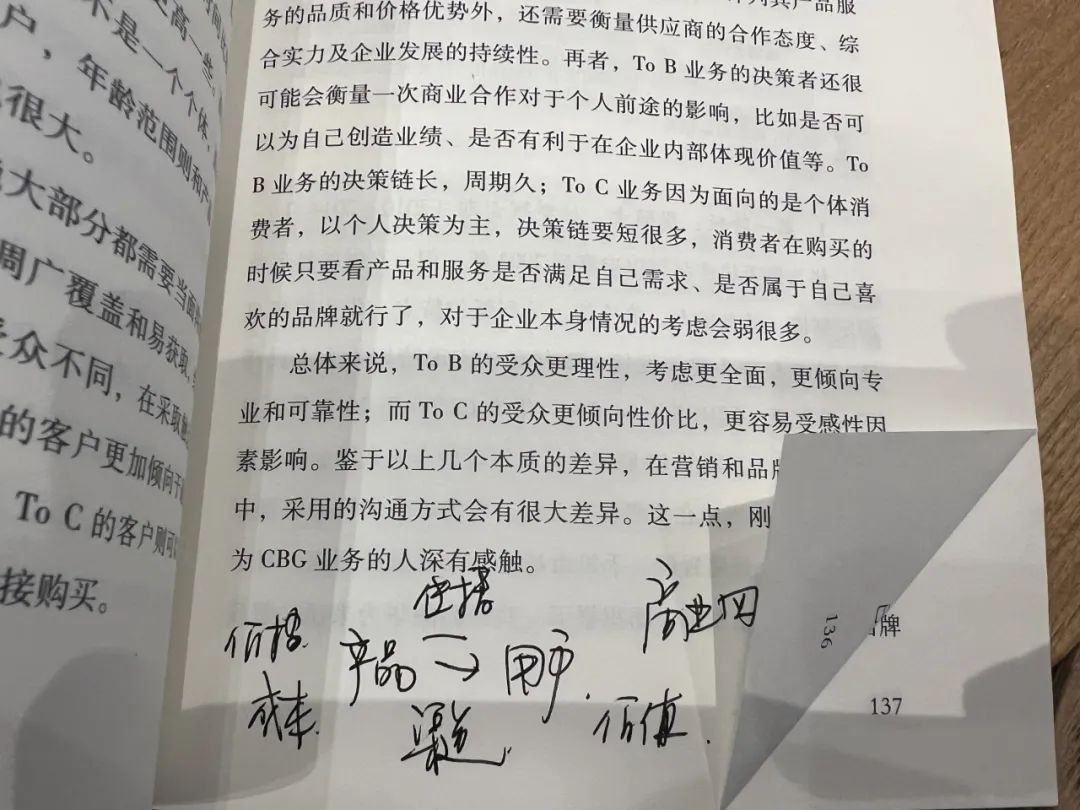 高一些。
不是一个个体，
户，年龄范围则和产
很大。
大部分都需要当面
周广覆盖和易获取，
受众不同，在采取
的客户更加倾向于
To C 的客户则可
接购买。
其产品服
务的品质和价格优势外，还需要衡量供应商的合作态度、综
合实力及企业发展的持续性。再者，To B 业务的决策者还很
可能会衡量一次商业合作对于个人前途的影响，比如是否可
以为自己创造业绩、是否有利于在企业内部体现价值等。To
B 业务的决策链长，周期久；To C 业务因为面向的是个体消
费者，以个人决策为主，决策链要短很多，消费者在购买的
时候只要看产品和服务是否满足自己需求、是否属于自己喜
欢的品牌就行了，对于企业本身情况的考虑会弱很多。
总体来说，To B 的受众更理性，考虑更全面，更倾向专
业和可靠性；而 To C 的受众更倾向性价比，更容易受感性因
素影响。鉴于以上几个本质的差异，在营销和品牌
中，采用的沟通方式会有很大差异。这一点，刚
为 CBG 业务的人深有感触。
传播
价格 产品 → 用户 商业
成本 渠道 价值
136
牌
137